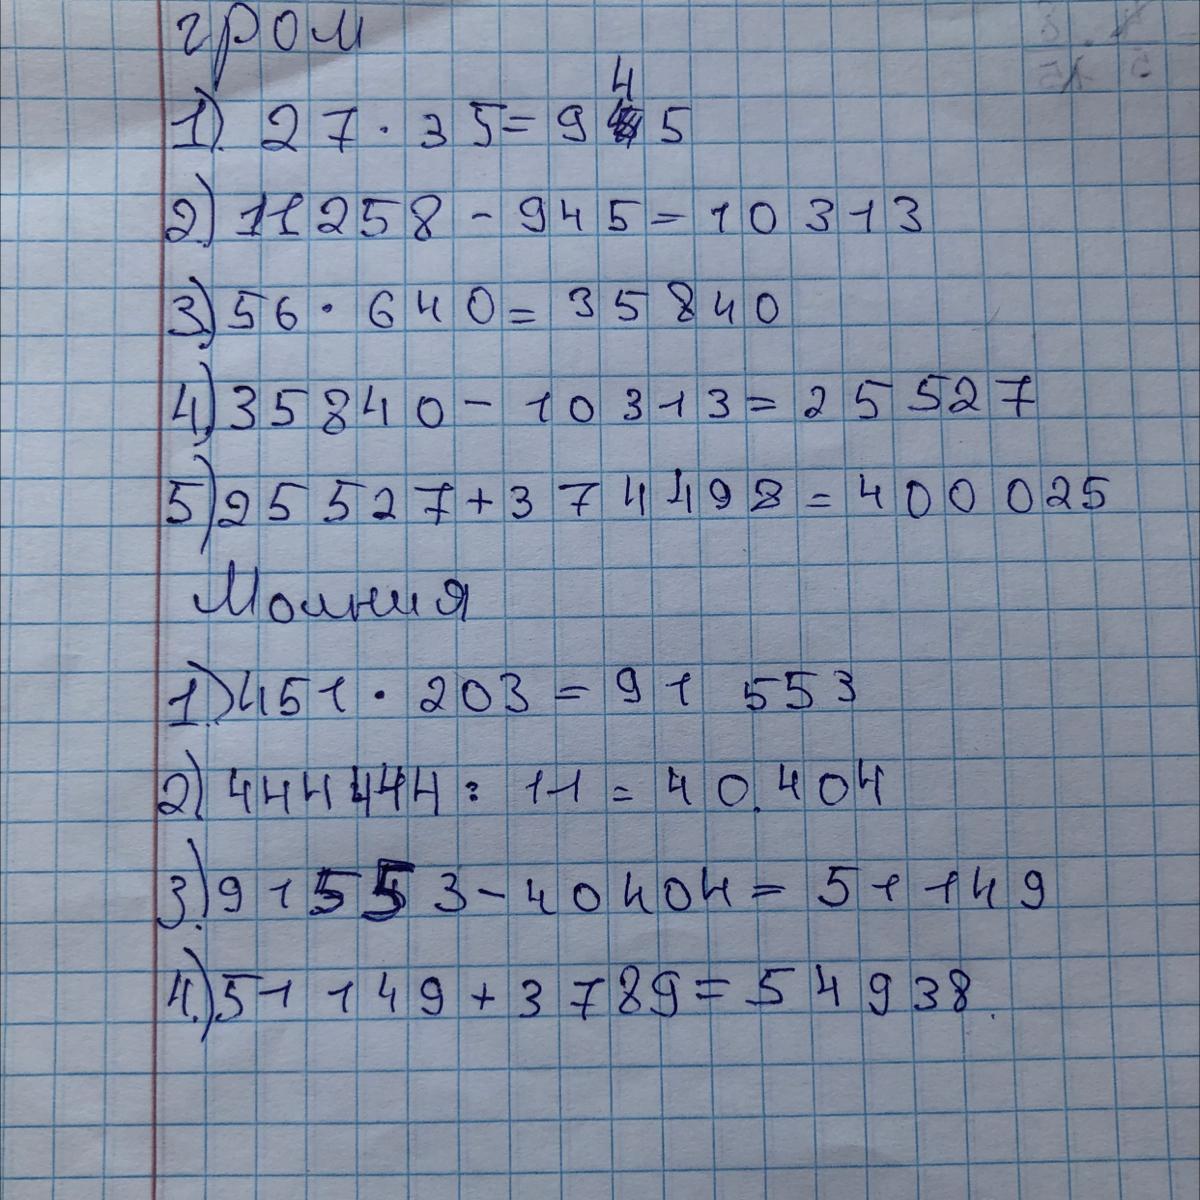 гром
1). 27 · 35 = 945
2) 11258 - 945 = 10313
3) 56 · 640 = 35840
4) 35840 - 10313 = 25527
5) 25527 + 374498 = 400025
Молния
1) 451 · 203 = 91 553
2) 444444 : 11 = 40.404
3) 91553 - 40404 = 51149
4) 51149 + 3789 = 54938.